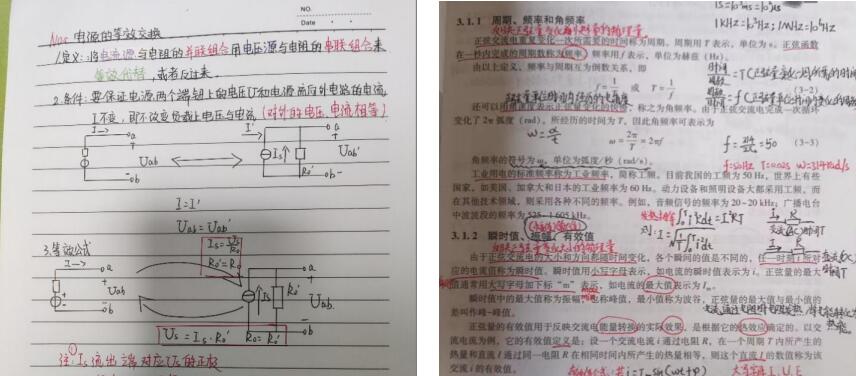 NO.
Date
No5 电源的等效变换
1.定义:将电流源与电阻的并联组合用电压源与电阻的串联组合来
等效代替,或者反过来.
2.条件:要保证电源两个端钮上的电压U和电源流向外电路的电流
I不变,即不改变负载上电压与电流(对外的电压,电流相等)
I→ a
Uab
b
I' a
Is↑ R₀' Uab'
b
I=I'
Uab=Uab'
3.等效公式
Is=Us/R₀
R₀'=R₀
I→ a
Uab
b
a
Is R₀' Uab
b
Us=Is·R₀' R₀=R₀'
注:① Is流出端对应Us的正极
1KHz=10³Hz;1MHz=10⁶Hz
3.1.1 周期、频率和角频率
正弦交流电重复变化一次所需要的时间称为周期。周期用 T 表示,单位为 s。正弦函数
在一秒内完成的周期数称为频率。频率用 f 表示,单位为赫兹(Hz)。
由以上定义,频率与周期互为倒数关系,即
f=1/T 或 T=1/f (3-2)
还可以用角速度表示正弦量变化的快慢,称之为角频率。由于正弦交流电完成一次循环
变化了 2π 弧度(rad),所经历的时间为 T。因此角频率可表示为
ω=2π/T=2πf (3-3)
f=314/2π=50
角频率的符号为 ω,单位为弧度/秒(rad/s)。
f=50Hz T=0.02s ω=314rad/s
工业用电的标准频率称为工业频率,简称工频。目前我国的工频为 50 Hz,世界上有些
国家,如美国、加拿大和日本的工业频率为 60 Hz。动力设备和照明设备大都采用工频。而
在其他技术领域,则采用各种不同的频率。例如,音频信号的频率为 20~20 kHz;广播电台
中波波段的频率为 525~1 605 kHz。
3.1.2 瞬时值、振幅、有效值
由于正弦交流电的大小和方向都随时间变化,各个瞬间的值是不同的,任一时刻 i 所对
应的电流值称为瞬时值。瞬时值用小写字母表示,如电流的瞬时值表示为 i。正弦量的最大
值通常用大写字母加下标“m”表示,如电流的最大值表示为 Iₘ。
瞬时值中的最大值称为振幅,也称峰值,最小值称为波谷,正弦量的最大值与最小值的
差叫作峰-峰值。
正弦量的有效值用于反映交流电能量转换的实际效果,是根据它的热效应确定的。以交
流电流为例,它的有效值定义是:设一个交流电流 i 通过电阻 R,在一个周期 T 内所产生的
热量和直流 I 通过同一电阻 R 在相同时间内所产生的热量相等,则这个直流 I 的数值称为该
交流 i 的有效值。